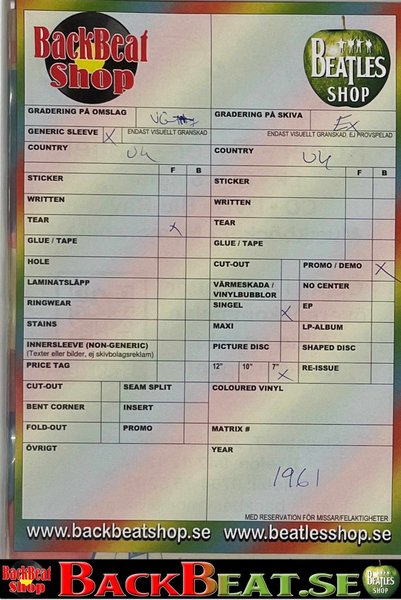 BackBeat
Shop
BEATLES
SHOP
GRADERING PÅ OMSLAG VG
GENERIC SLEEVE X ENDAST VISUELLT GRANSKAD
COUNTRY UK
F B
STICKER
WRITTEN
TEAR X
GLUE / TAPE
HOLE
LAMINATSLÄPP
RINGWEAR
STAINS
INNERSLEEVE (NON-GENERIC)
(Texter eller bilder, ej skivbolagsreklam)
PRICE TAG
CUT-OUT SEAM SPLIT
BENT CORNER INSERT
FOLD-OUT PROMO
ÖVRIGT
GRADERING PÅ SKIVA Ex
ENDAST VISUELLT GRANSKAD, EJ PROVSPELAD
COUNTRY UK
F B
STICKER
WRITTEN
TEAR
GLUE / TAPE
CUT-OUT PROMO / DEMO X
VÄRMESKADA / NO CENTER
VINYLBUBBLOR
SINGEL X EP
MAXI LP-ALBUM
PICTURE DISC SHAPED DISC
12" 10" 7" X RE-ISSUE
COLOURED VINYL
MATRIX #
YEAR
1961
MED RESERVATION FÖR MISSAR/FELAKTIGHETER
www.backbeatshop.se www.beatlesshop.se
BackBeat
Shop
BACKBEAT.SE
BEATLES
SHOP